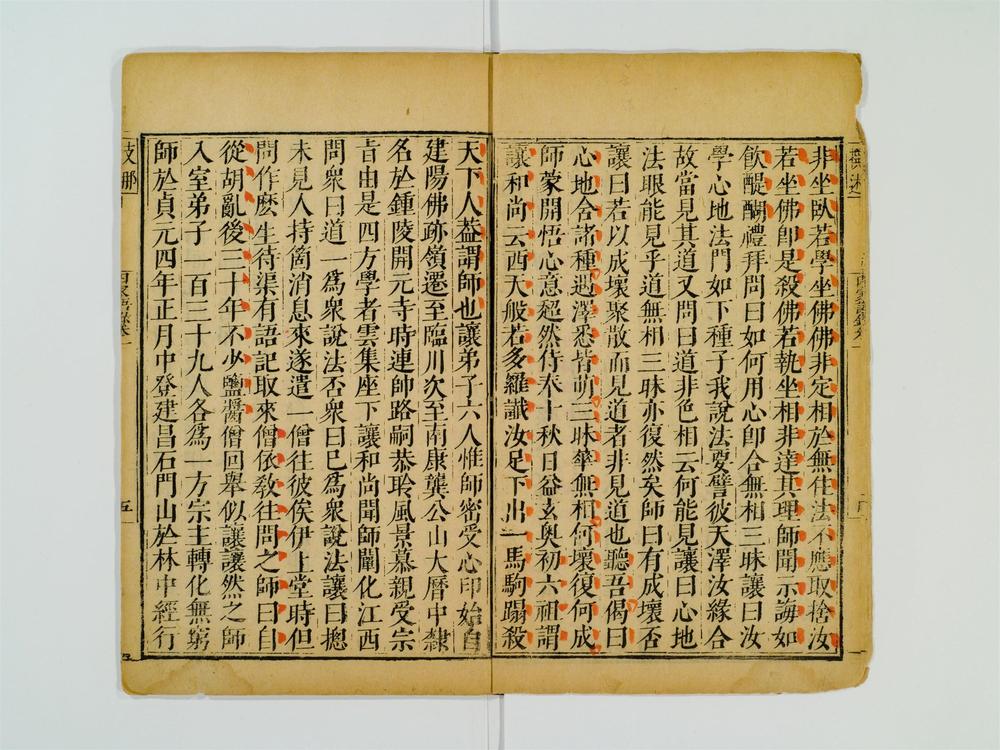 非坐臥若學坐佛佛非定相於無住法不應取捨汝
若坐佛卽是殺佛若執坐相非達其理師聞示誨如
飲醍醐禮拜問曰如何用心卽合無相三昧讓曰汝
學心地法門如下種子我說法要譬彼天澤汝緣合
故當見其道又問曰道非色相云何能見讓曰心地
法眼能見乎道無相三昧亦復然矣師曰有成壞否
讓曰若以成壞聚散而見道者非見道也聽吾偈曰
心地含諸種遇澤悉皆萌三昧華無相何壞復何成
師蒙開悟心意超然侍奉十秋日益玄奧初六祖謂
讓和尚云西天般若多羅讖汝足下出一馬駒蹋殺
天下人葢謂師也讓弟子六人惟師密受心印始自
建陽佛跡嶺遷至臨川次至南康龔公山大曆中隸
名於鍾陵開元寺時連師路嗣恭聆風景慕親受宗
旨由是四方學者雲集座下讓和尚聞師闡化江西
問衆曰道一爲衆說法否衆曰已爲衆說法讓曰摠
未見人持箇消息來遂遣一僧往彼俟伊上堂時但
問作麽生待渠有語記取來僧依敎往問之師曰自
從胡亂後三十年不少鹽醬僧回舉似讓讓然之師
入室弟子一百三十九人各爲一方宗主轉化無窮
師於貞元四年正月中登建昌石門山於林中經行
支那
五